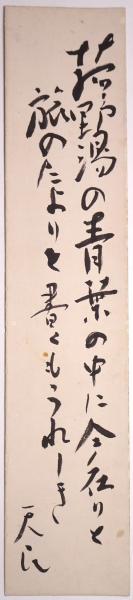 菰野湯の青葉の中に今在りと
旅のたよりを書くもうれしき
天民